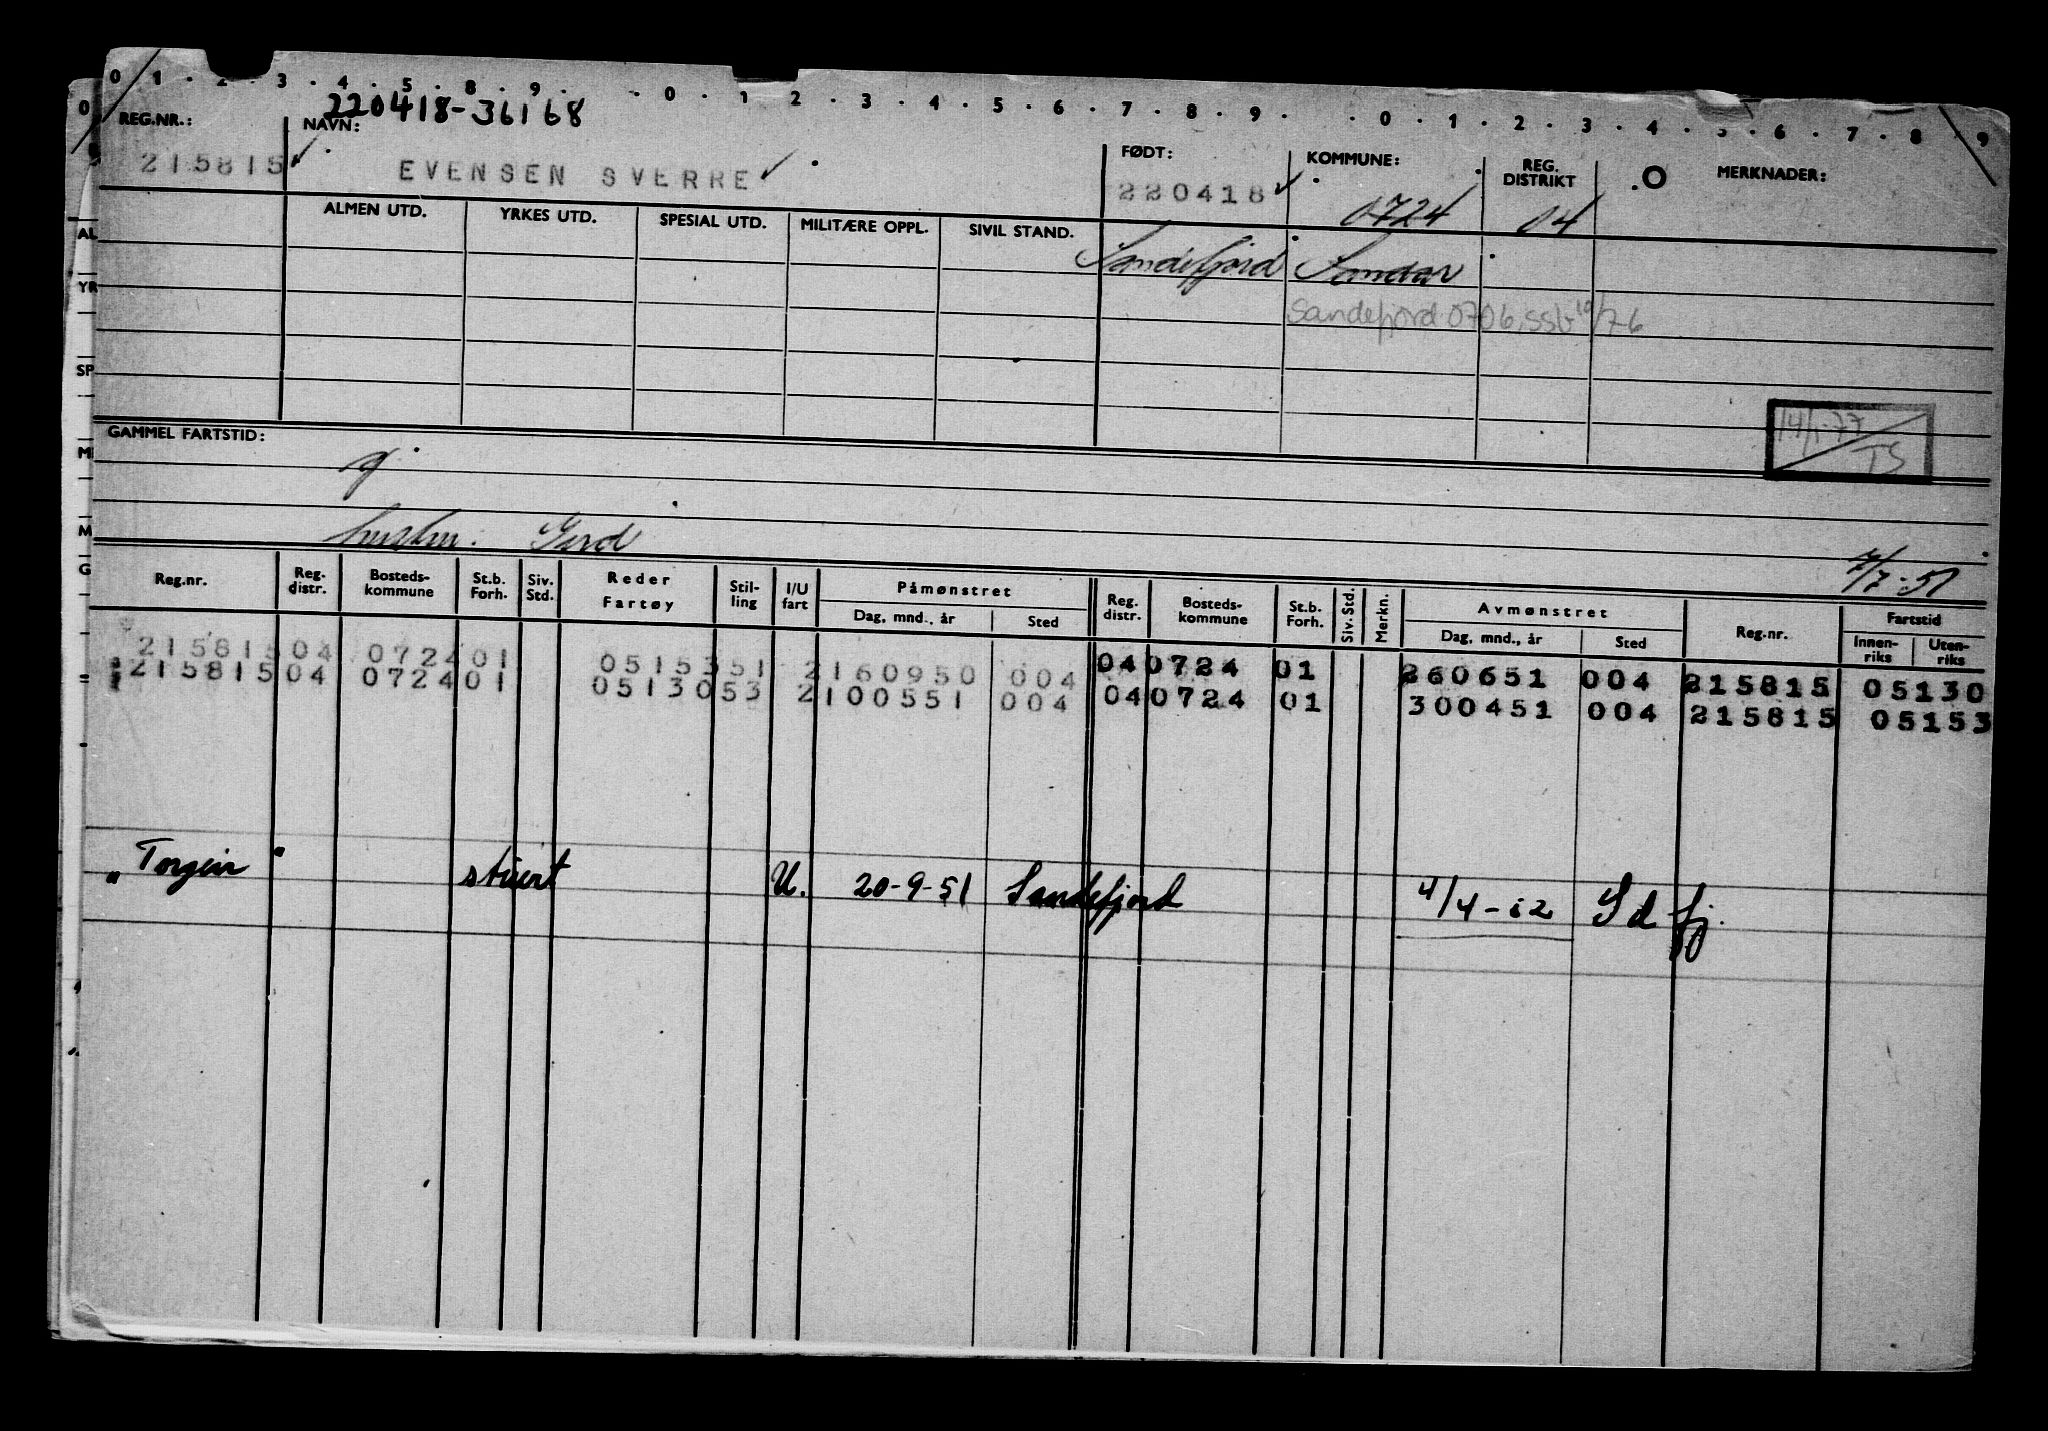 0 1 2 3 4 5 8 9 0 1 2 3 4 5 6 7 8 9 0 1 2 3 4 5 6 7 8 9
220418-36168
REG.NR.: NAVN: FØDT: KOMMUNE: REG. DISTRIKT O MERKNADER:
215815 EVENSEN SVERRE 220418 0724 04
ALMEN UTD. YRKES UTD. SPESIAL UTD. MILITÆRE OPPL. SIVIL STAND. Sandefjord Sandar
Sandefjord 0706, ssb 10/76
14/1-77
TS
GAMMEL FARTSTID:
hustru: Gerd
7/7-51
Reg.nr. Reg. distr. Bosteds-kommune St.b. Forh. Siv. Std. Reder Fartøy Stil-ling I/U fart Påmønstret Reg. distr. Bosteds-kommune St.b. Forh. Siv. Std. Merkn. Avmønstret Reg.nr. Fartstid
Dag, mnd., år Sted Dag, mnd., år Sted Innen-riks Uten-riks
215815 04 0724 01 05153 51 2 160950 004 04 0724 01 260651 004 215815 05130
215815 04 0724 01 05130 53 2 100551 004 04 0724 01 300451 004 215815 05153
"Torgeir" stuert U. 20-9-51 Sandefjord 4/4-52 Sdfj.